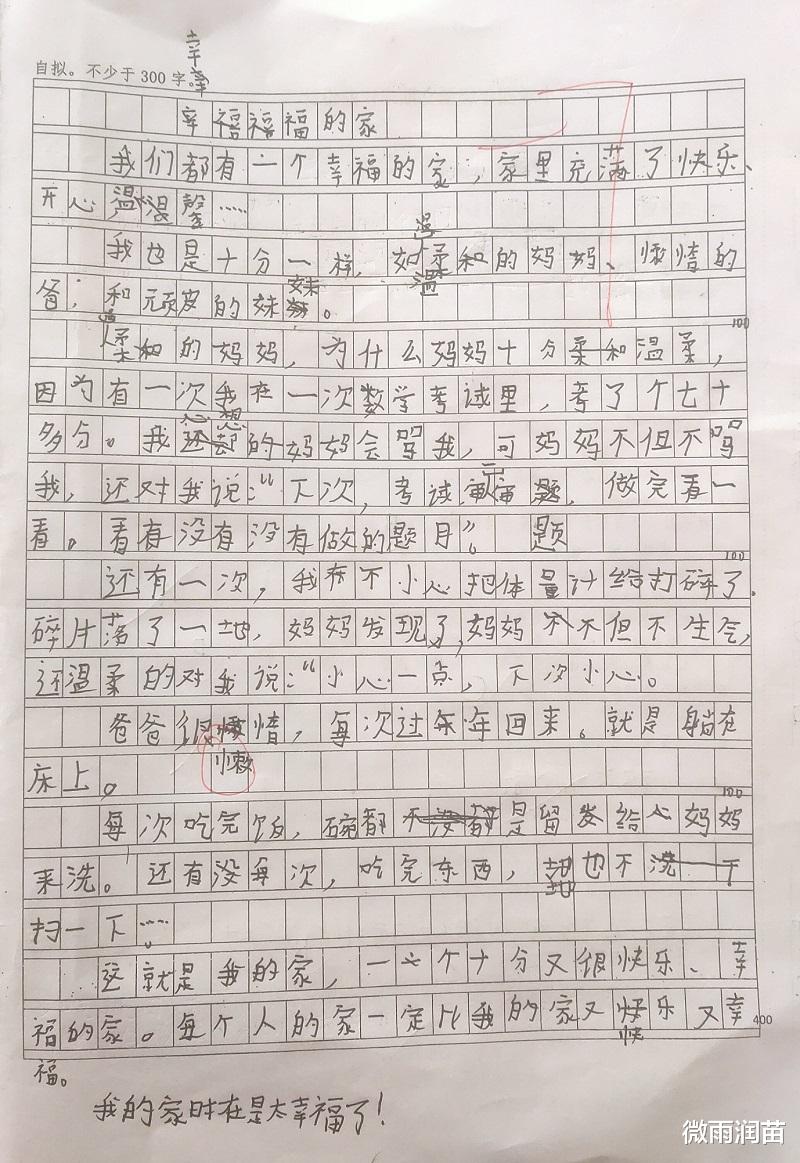 幸
自拟。不少于300字。
幸福福福的家
我们都有一个幸福的家，家里充满了快乐、
开心温馨……
我也是十分一样，如温柔和的妈妈、懒惰的
爸，和顽皮的妹妹。
柔和的妈妈，为什么妈妈十分柔和温柔，
100
因为有一次我在一次数学考试里，考了个七十
多分。我心想的妈妈会骂我，可妈妈不但不骂
我，还对我说：“下次，考试审题，做完看一
看。看有没有没有做的题目”。题
还有一次，我在不小心把体量计给打碎了.
100
碎片荡了一地，妈妈发现了，妈妈不不但不生气，
还温柔的对我说：“小心一点，下次小心。
爸爸很懒惰，每次过年年回来。就是躺在
懒
床上。
每次吃完饭，碗都是留给妈妈
100
来洗。还有没每次，吃完东西，地也不
扫一下……
这就是我的家，一个十分又很快乐、幸
福的家。每个人的家一定比我的家又快乐又幸
400
福。
我的家时在是太幸福了！
微雨润苗